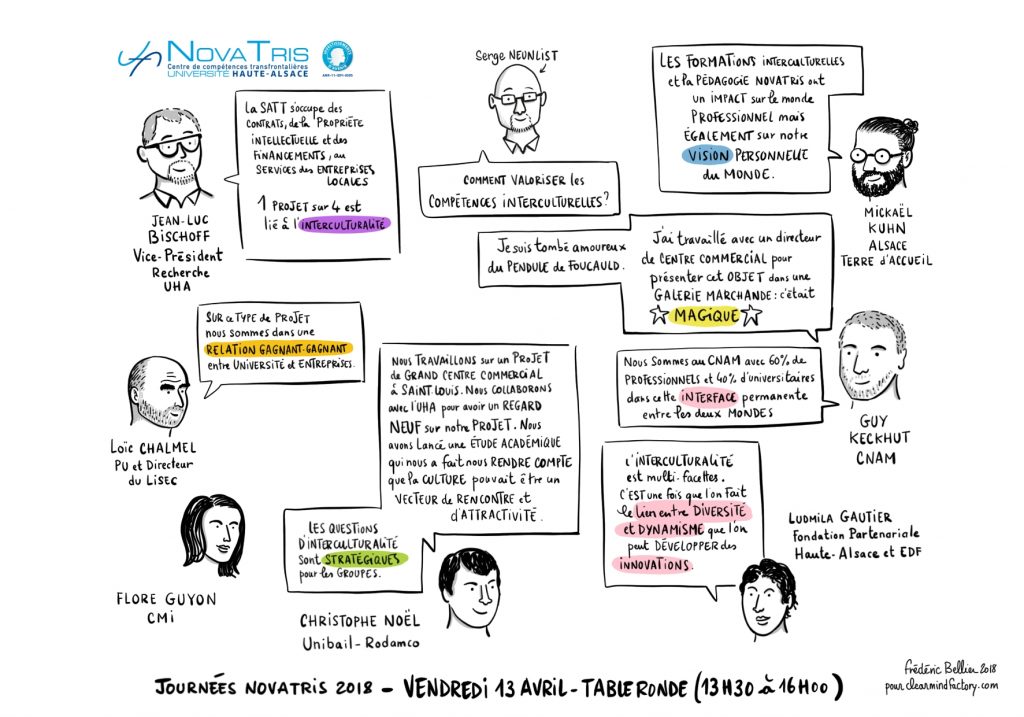 NOVATRIS
Centre de compétences transfrontalières
UNIVERSITÉ HAUTE-ALSACE
ANR-11-IDFI-0005
Serge NEUNLIST
COMMENT VALORISER les
COMPÉTENCES INTERCULTURELLES?
LA SATT s'occupe des
CONTRATS, de la PROPRIÉTE
INTELLECTUELLE et des
FINANCEMENTS, au
SERVICES des ENTREPRISES
LOCALES
1 PROJET sur 4 est
lié à l'INTERCULTURALITÉ
JEAN-LUC
BISCHOFF
Vice-Président
Recherche
UHA
LES FORMATIONS INTERCULTURELLES
et la PÉDAGOGIE NOVATRIS ont
un IMPACT sur le monde
PROFESSIONNEL mais
ÉGALEMENT sur notre
VISION PERSONNELLE
du MONDE.
MICKAËL
KUHN
ALSACE
TERRE d'ACCUEIL
Je suis tombé amoureux
du PENDULE de FOUCAULD.
J'ai travaillé avec un directeur
de CENTRE COMMERCIAL pour
présenter cet OBJET dans une
GALERIE MARCHANDE : c'était
MAGIQUE
Nous Sommes au CNAM avec 60% de
PROFESSIONNELS et 40% d'universitaires
dans cette INTERFACE permanente
entre les deux MONDES
GUY
KECKHUT
CNAM
SUR ce TYPE de PROJET
nous sommes dans une
RELATION GAGNANT-GAGNANT
entre UNIVERSITÉ et ENTREPRISES.
Loïc CHALMEL
PU et Directeur
du LiSEC
NOUS TRAVAILLONS sur un PROJET
de GRAND CENTRE COMMERCIAL
à SAINT LOUIS. Nous COLLABORONS
avec l'UHA pour avoir un REGARD
NEUF sur notre PROJET. Nous
avons Lancé une ÉTUDE ACADÉMIQUE
qui nous a fait nous RENDRE COMPTE
que la CULTURE pouvait être un
VECTEUR de RENCONTRE et
d'ATTRACTIVITÉ.
LES QUESTIONS
D'INTERCULTURALITÉ
sont STRATÉGIQUES
pour les GROUPES.
CHRISTOPHE NOËL
Unibail-Rodamco
FLORE GUYON
CMI
L'INTERCULTURALITÉ
est multi-facettes.
C'EST une fois que l'on Fait
le lien entre DIVERSITÉ
et DYNAMISME que l'on
peut DÉVELOPPER des
INNOVATIONS.
LUDMILA GAUTIER
Fondation Partenariale
Haute-Alsace et EDF
Frédéric Bellier 2018
pour clearmindfactory.com
JOURNÉES NOVATRIS 2018 - VENDREDI 13 AVRIL - TABLE RONDE (13H30 à 16H00)